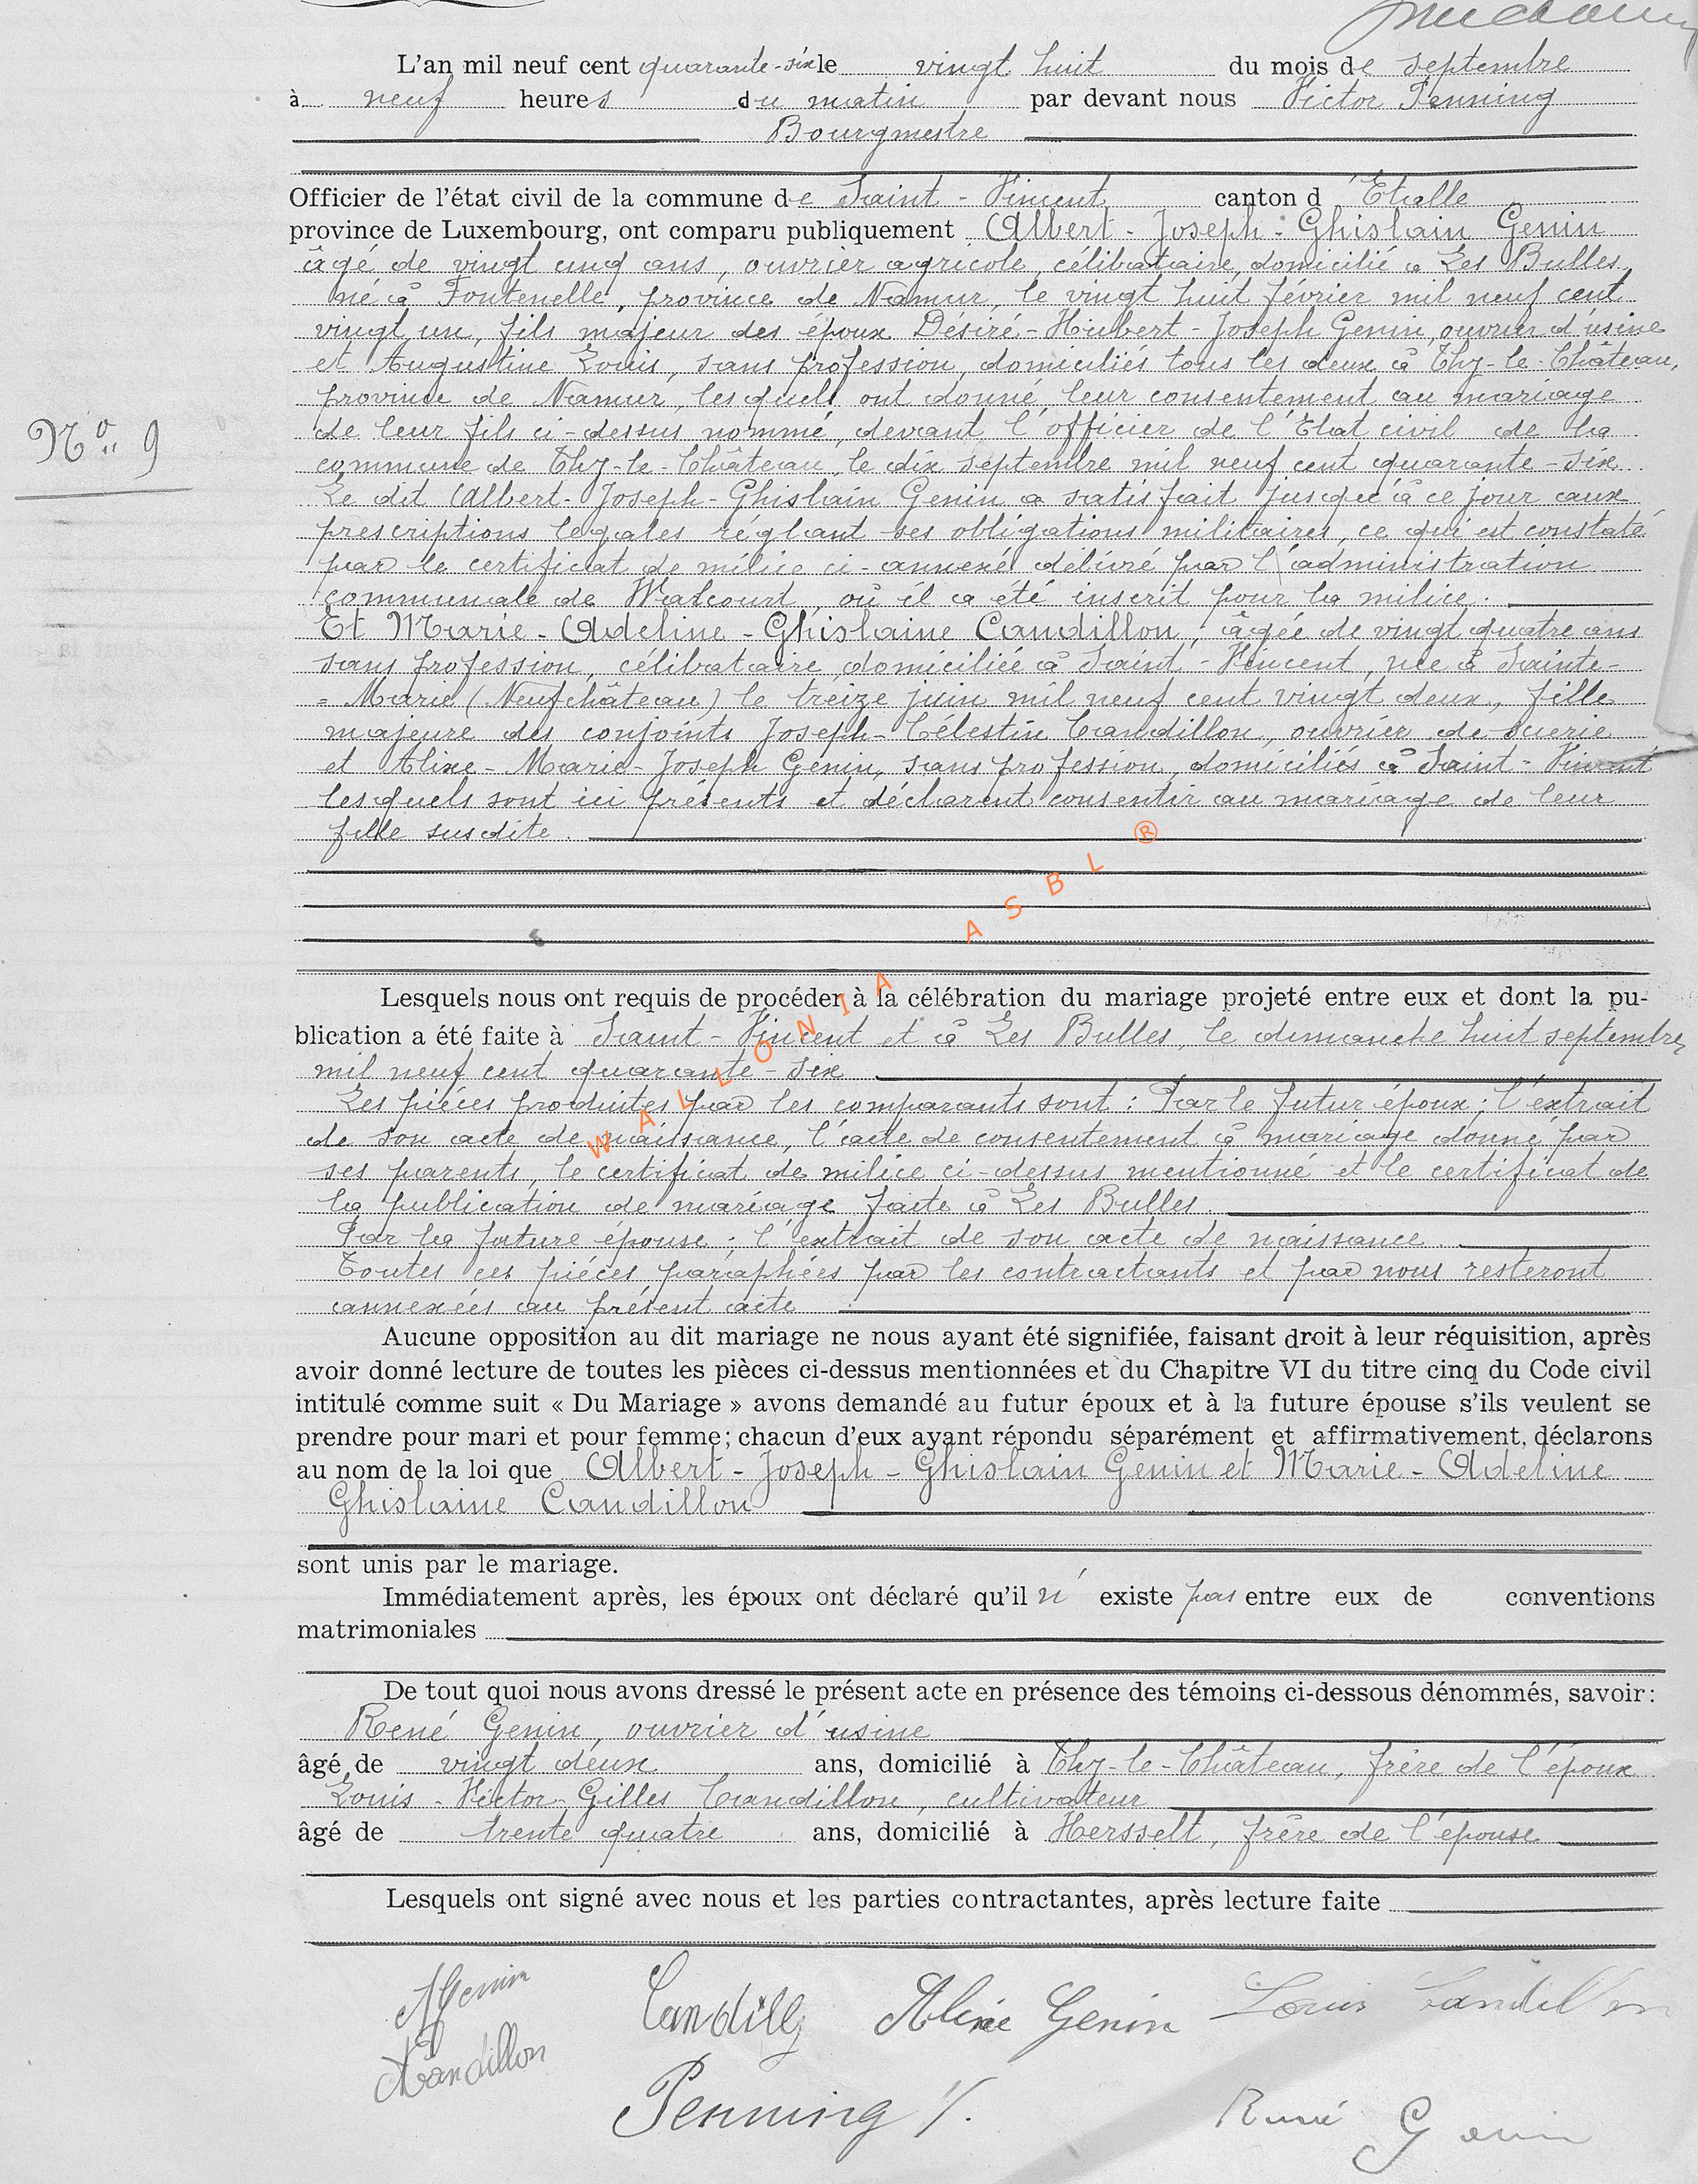 L'an mil neuf cent quarante-six le vingt huit du mois de septembre
à neuf heures du matin par devant nous Victor Penning
Bourgmestre
Officier de l'état civil de la commune de Saint-Vincent canton d'Etalle
province de Luxembourg, ont comparu publiquement Albert-Joseph-Ghislain Genin
âgé de vingt cinq ans, ouvrier agricole, célibataire, domicilié à Les Bulles,
né à Fontenelle, province de Namur, le vingt huit février mil neuf cent
vingt un, fils majeur des époux Désiré-Hubert-Joseph Genin, ouvrier d'usine
et Augustine Louis, sans profession, domiciliés tous les deux à Thy-le-Château,
province de Namur, lesquels ont donné leur consentement au mariage
de leur fils ci-dessus nommé, devant l'officier de l'Etat civil de la
commune de Thy-le-Château, le dix septembre mil neuf cent quarante-six.
N° 9
Le dit Albert-Joseph-Ghislain Genin a satisfait jusqu'à ce jour aux
prescriptions légales réglant ses obligations militaires, ce qui est constaté
par le certificat de milice ci-annexé délivré par l'administration
communale de Walcourt, où il a été inscrit pour la milice.
Et Marie-Adeline-Ghislaine Candillon, âgée de vingt quatre ans
sans profession, célibataire, domiciliée à Saint-Vincent, née à Sainte-
-Marie (Neufchâteau) le treize juin mil neuf cent vingt deux, fille
majeure des conjoints Joseph-Célestin Candillon, ouvrier de scierie
et Alixe-Marie-Joseph Genin, sans profession, domiciliés à Saint-Vincent
lesquels sont ici présents et déclarent consentir au mariage de leur
fille susdite.
WALLONIA ASBL ®
Lesquels nous ont requis de procéder à la célébration du mariage projeté entre eux et dont la pu-
blication a été faite à Saint-Vincent et à Les Bulles, le dimanche huit septembre
mil neuf cent quarante-six
Les pièces produites par les comparants sont : Par le futur époux : l'extrait
de son acte de naissance, l'acte de consentement à mariage donné par
ses parents, le certificat de milice ci-dessus mentionné et le certificat de
la publication de mariage faite à Les Bulles.
Par la future épouse : l'extrait de son acte de naissance.
Toutes ces pièces paraphées par les contractants et par nous resteront
annexées au présent acte
Aucune opposition au dit mariage ne nous ayant été signifiée, faisant droit à leur réquisition, après
avoir donné lecture de toutes les pièces ci-dessus mentionnées et du Chapitre VI du titre cinq du Code civil
intitulé comme suit « Du Mariage » avons demandé au futur époux et à la future épouse s'ils veulent se
prendre pour mari et pour femme; chacun d'eux ayant répondu séparément et affirmativement, déclarons
au nom de la loi que Albert-Joseph-Ghislain Genin et Marie-Adeline
Ghislaine Candillon
sont unis par le mariage.
Immédiatement après, les époux ont déclaré qu'il n'existe pas entre eux de conventions
matrimoniales
De tout quoi nous avons dressé le présent acte en présence des témoins ci-dessous dénommés, savoir :
René Genin, ouvrier d'usine
âgé de vingt deux ans, domicilié à Thy-le-Château, frère de l'époux
Louis-Victor-Gilles Candillon, cultivateur
âgé de trente quatre ans, domicilié à Hersselt, frère de l'épouse
Lesquels ont signé avec nous et les parties contractantes, après lecture faite
AGenin Candill Alixe Genin Louis Candillon
Candillon
Penning V. René Genin